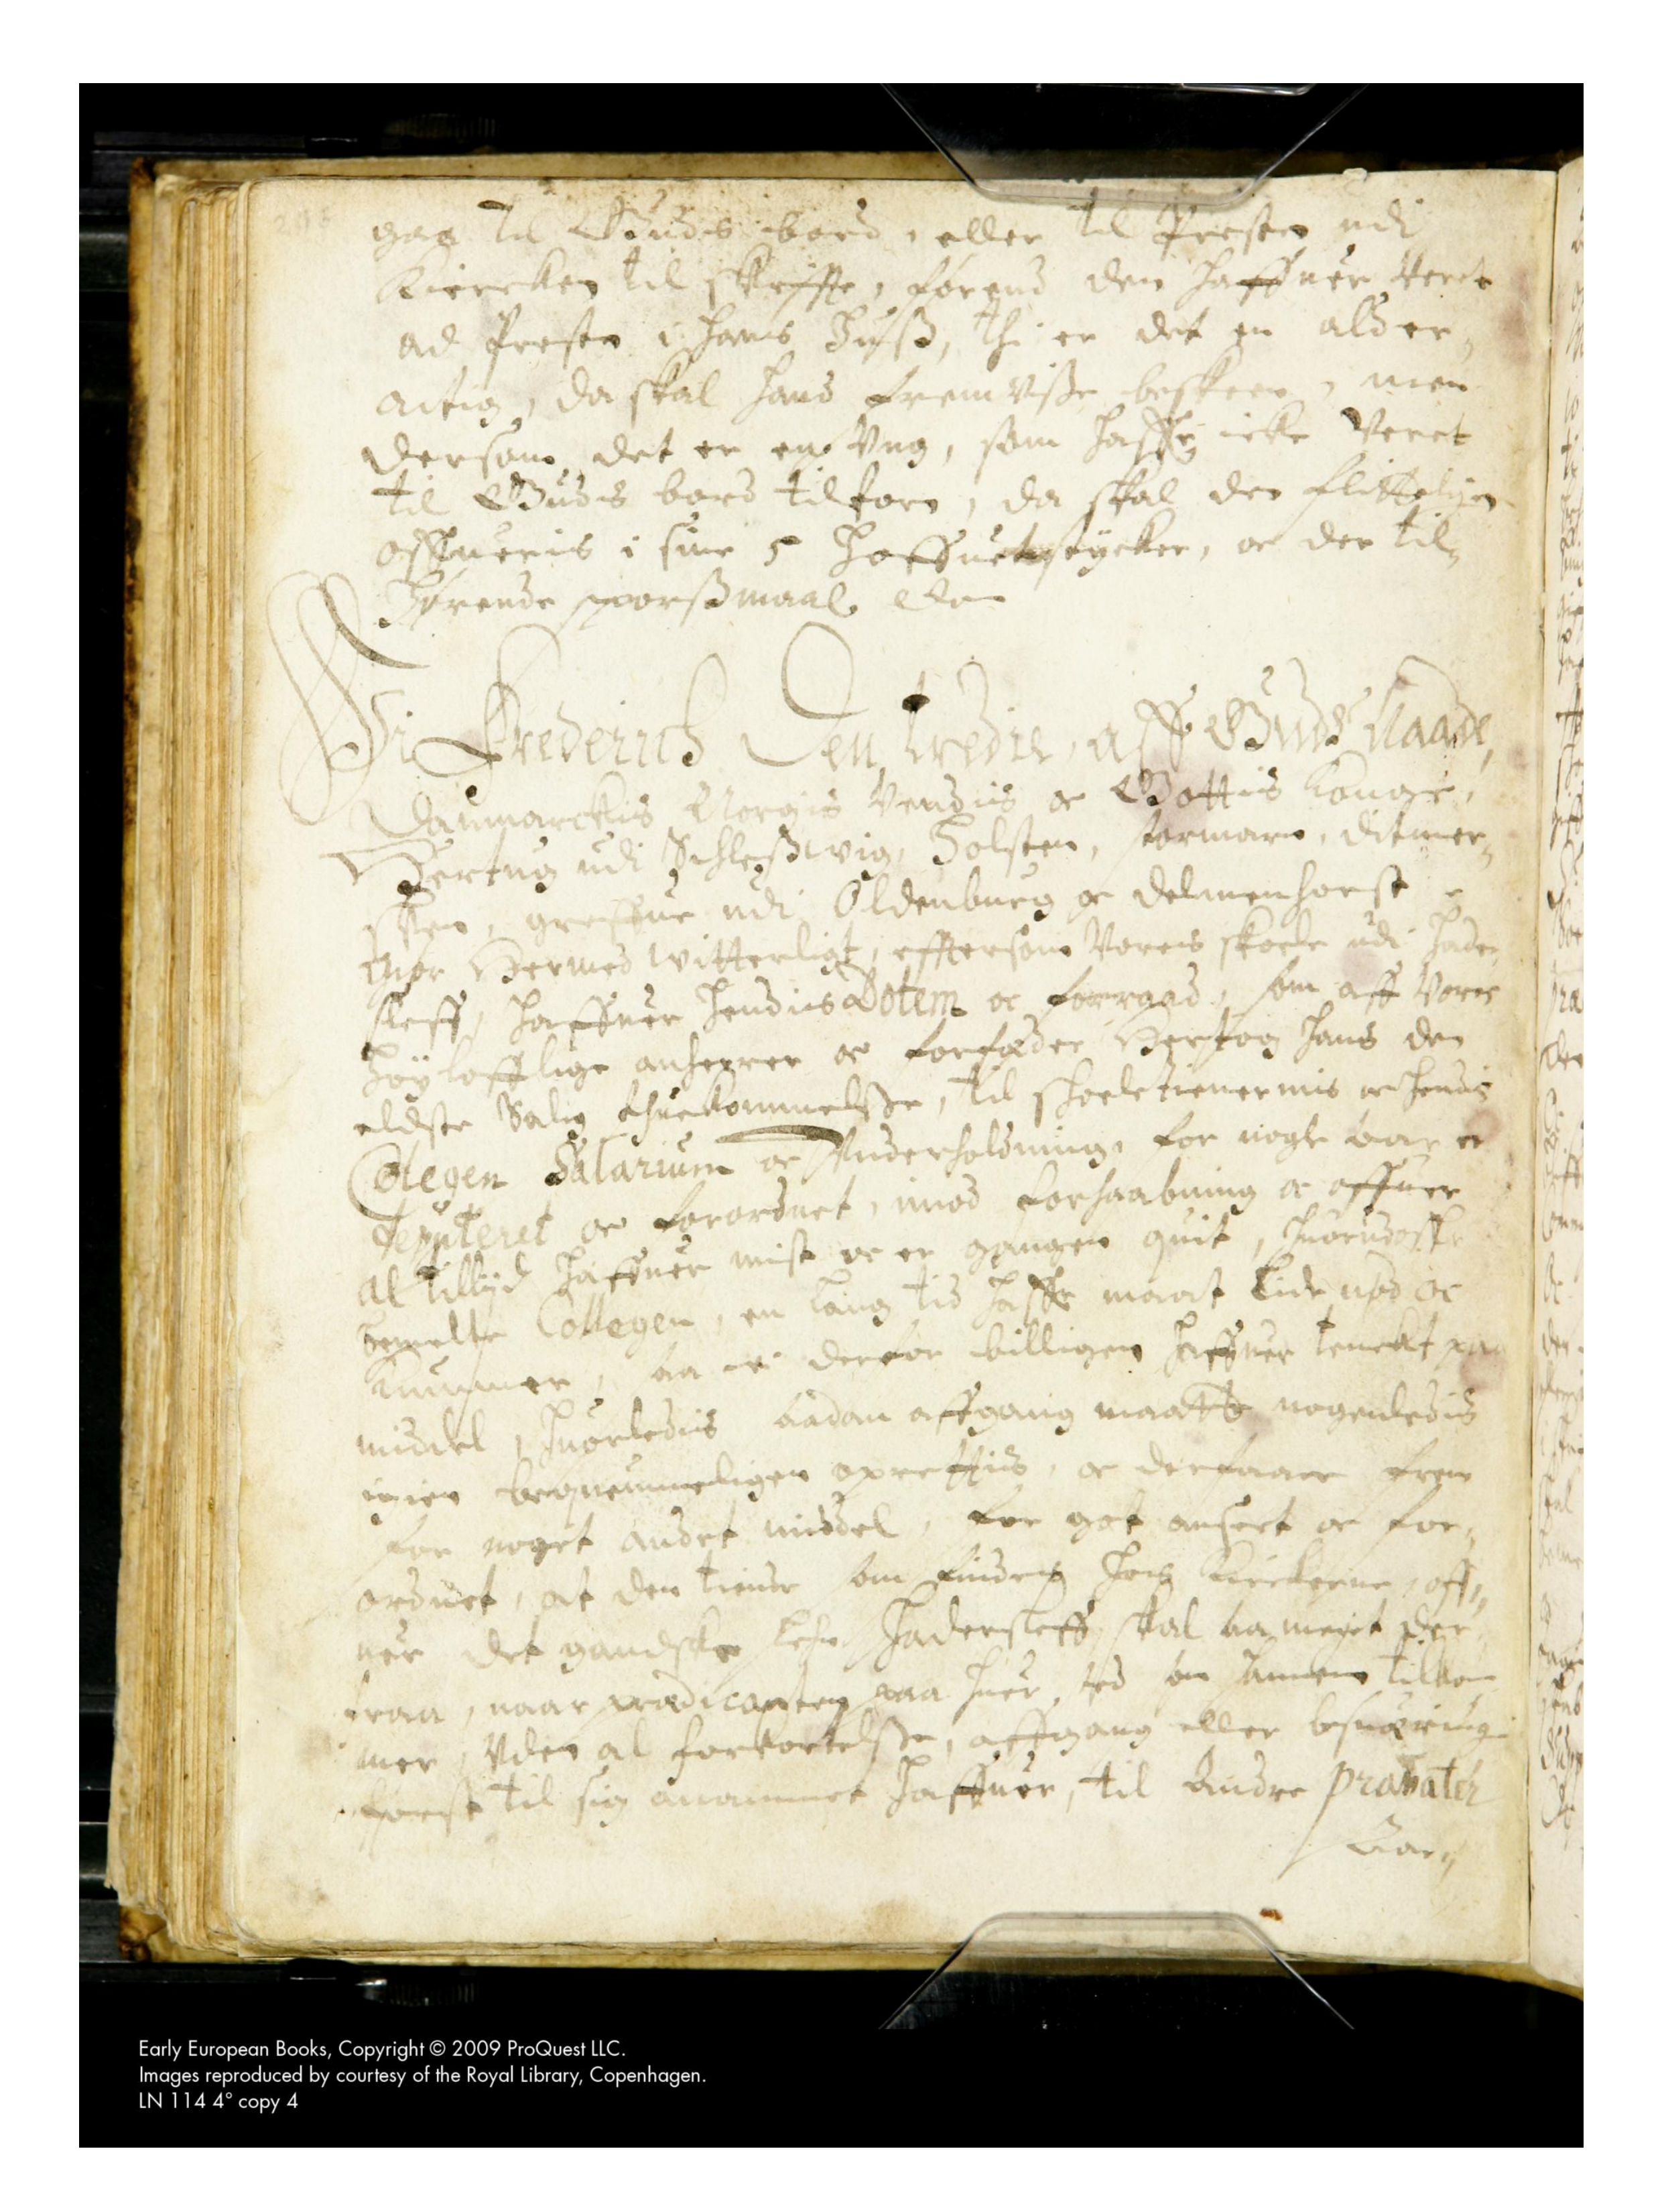 gaa til Gudis bord, eller til Presten udi
Kiercken til skriffte, førend den haffuer verit
ad Presten i hans Huß, thi er det en alder,
actig, da skal hans fremviße beskeen, men
dersom det er en Vng, som haffr icke Veret
til Gudis bord tilforn, da skal den flitteligen
offhueris i sine 5 Hoffuetstycker, oc der til,
hørende sporßmaal
Wi Frederich Den tredie, aff Guds Naade,
Danmarckis Norgis Vendis oc Gottis Konge,
Hertug udi Schleßwig, Holsten, stormarn, ditmer,
sken, greffue udi Oldenburg oc delmenhorst
Giør Hermed witterligt, efftersom Voris skoele udi Hader,
sleff, haffuer hendiis Dotem oc forraad, som aff Vore
høyloffliige anherrer oc forfæder Hertog Hans den
eldste Salig ihuekommelße, til schoeletienernis oc hendis
Collegen Salarium oc Underholdning, for nogle aar er
deputeret oc forordnet, imod forhaabning oc offuer
al tilliid haffuer mist oc er gangen quit, huorudoffr
bemelte Collegen, en lang tid haffr maat lide nød oc
kummer, saa wi derfor billigen haffuer tenckt paa
middel, huorlediis saadan affgang maatte nogenledis
igien beqvemmeligen oprettiis, oc derfaare frem
for noget andet middel, for got anseet oc for,
ordnet, at den tiende som findes hos Kirckerne, off,,
uer det gandske Lehn Hadersleff, skal saa meget der,
fraa, naar prædicanten paa huer sted som hannem tilkom
mer, Vden al forkortelße, affgang eller besuæring
først til sig anammet haffuer, til Andre